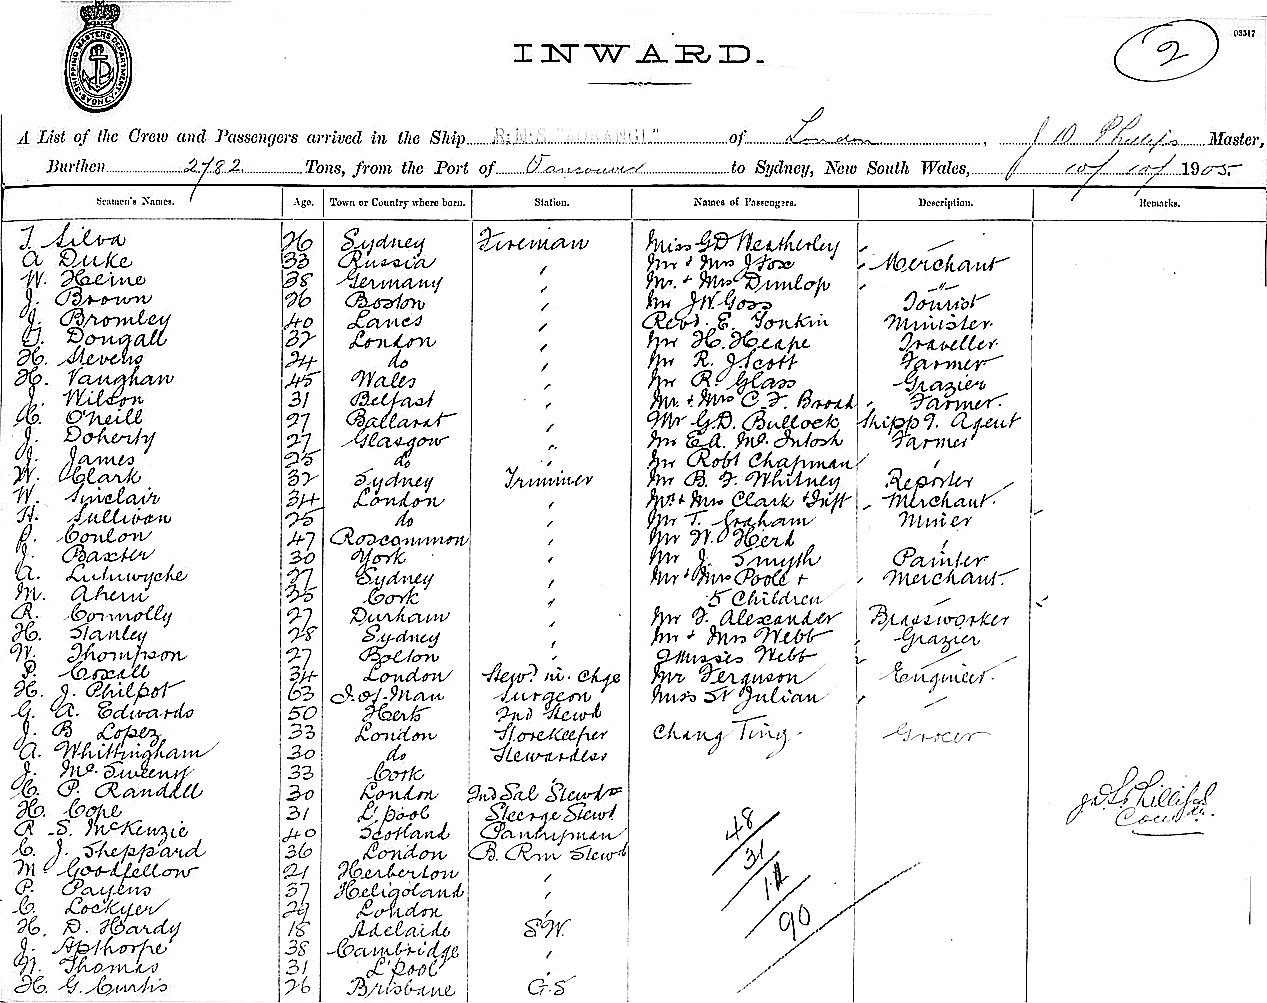 SHIPPING MASTERS DEPARTMENT SYDNEY
03317
2
INWARD.
A List of the Crew and Passengers arrived in the Ship R.M.S. "AORANGI" of London, J D Phillips Master,
Burthen 2782 Tons, from the Port of Vancouver to Sydney, New South Wales, 10/10/1905.
Seamen's Names. Age. Town or Country where born. Station. Names of Passengers. Description. Remarks.
T. Silva 26 Sydney Fireman Miss G D Weatherley
A Duke 33 Russia " Mr & Mrs J Fox Merchant
W. Heine 38 Germany " Mr. & Mrs Dunlop "
J. Brown 26 Boston " Mr J W Goss Tourist
J. Bromley 40 Lancs " Revd. E. Tonkin Minister
T. Dougall 32 London " Mr H. Heape Traveller
H. Stevens 24 do " Mr R. J. Scott Farmer
H. Vaughan 45 Wales " Mr R. Glass Grazier
J. Wilson 31 Belfast " Mr. & Mrs C. F. Broad Farmer.
C. O'Neill 27 Ballarat " Mr G. D. Bullock Shippg. Agent
J. Doherty 27 Glasgow " Mr E A. Mc. Intosh Farmer
J. James 25 do " Mr Robt Chapman "
W. Clark 32 Sydney Trimmer Mr B. F. Whitney Reporter
W. Sinclair 34 London " Mr & Mrs Clark & Inft Merchant.
H. Sullivan 25 do " Mr T. Graham Miner
P. Conlon 47 Roscommon " Mr W. Herd "
J. Baxter 30 York " Mr J. Smyth Painter
A. Lutuwyche 27 Sydney " Mr & Mrs Poole & Merchant.
M. Ahern 35 Cork " 5 Children
R. Connolly 27 Durham " Mr F. Alexander Brassworker
H. Stanley 28 Sydney " Mr & Mrs Webb Grazier
W. Thompson 27 Bolton " 2 Misses Webb
P. Coxall 34 London Stewd. in. Chge Mr Ferguson Engineer.
H. J. Philpot 63 I. of. Man Surgeon Miss St Julian
G. A. Edwards 50 Herts 2nd Stewd
J. B Lopez 33 London Storekeeper Chang Ting. Grocer
A. Whittingham 30 do Stewardess
J. Mc. Sweeny 33 Cork "
C. P. Randall 30 London 2nd Sal Stewd
H. Cope 31 L'pool Steerge Stewd
R. S. McKenzie 40 Scotland Pantryman
C. J. Sheppard 36 London B. Rm Stewd
M Goodfellow 21 Herberton "
P. Payens 37 Heligoland "
C. Lockyer 29 London "
H. D. Hardy 18 Adelaide S.W.
J. Apthorpe 38 Cambridge "
N. Thomas 31 L'pool "
H. G. Curtis 26 Brisbane G.S
48
31
12
90
J D Phillips